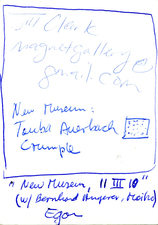 Jill Clark
magnetgallery@
gmail.com
New Museum:
Tauba Auerbach
Crumple
"New Museum, 11 III 10"
(w/ Bernhard
Egon